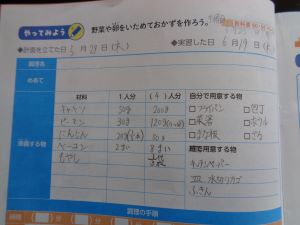 やってみよう 野菜や卵をいためておかずを作ろう。
◆計画を立てた日 5月29日(木) ◆実習した日 6月19日(木)
調理名
めあて
材料 1人分 (4)人分 自分で用意する物
キャベツ 50g 200g □フライパン □包丁
ピーマン 30g 120g □菜箸 □ボウル
にんじん 20g 80g □まな板 □ざる
ベーコン 2まい 8まい
もやし
準備する物
キッチンペーパー
皿 水切りカゴ
ふきん
調理の手順